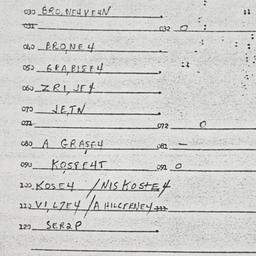 030 BRO,NE4VE4N
031 032 0
040 BRO,NE4
050 GRA,BISE4
060 ZRI,JE4
070 JE,TN
071 072 0
080 A GRASE4 081 –
090 KOSPE4T 091 0
100 KOSE4 / NISKOSTE4
110 VI,L7E4 / A HILCERNE4
120 SER2P